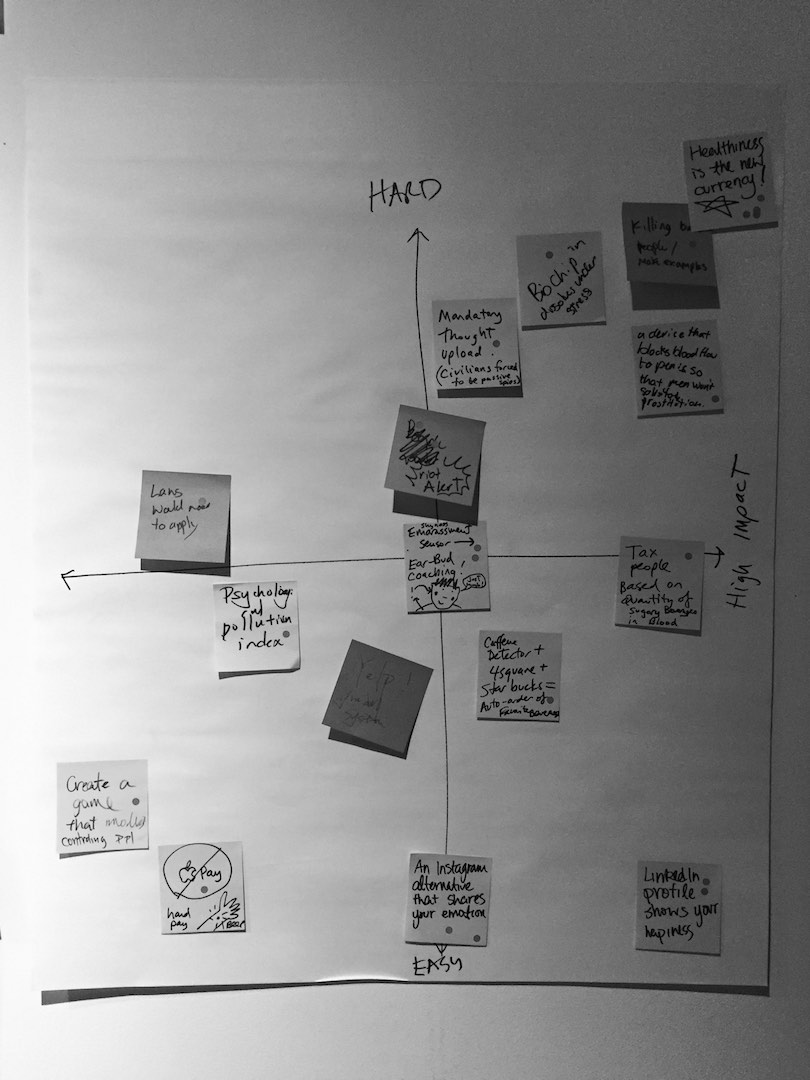 HARD
Healthiness
is the new
currency!
Killing
people/
Biochip in
under
stress
Mandatory
thought
upload.
(Civilians forced
to be passive
spies)
a device that
blocks blood flow
to penis so
that men won't
prostitution.
riot
ALERT
Laws
would
to apply
HIGH IMPACT
Embarassment
sensor →
Ear-Bud
coaching!
Tax
people
Based on
quantity of
sugary Beverages
in blood
Psychology
pollution
index
Caffeine
Detector +
4square +
Starbucks =
Auto-order of
Favorite Beverage
Yelp!
Create a
game
that
controling PPl
Pay
hand
pay
BEER
An Instagram
alternative
that shares
your emotion
LinkedIn
profile
shows your
hapiness
EASY